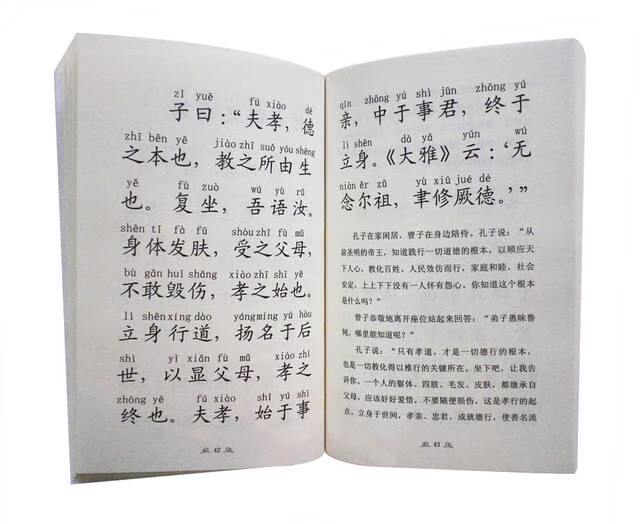 zǐ yuē fú xiào dé
子曰：“夫孝，德
zhī běn yě jiào zhī suǒ yóu shēng
之本也，教之所由生
yě fù zuò wú yù rǔ
也。复坐，吾语汝。
shēn tǐ fà fū shòu zhī fù mǔ
身体发肤，受之父母，
bù gǎn huǐ shāng xiào zhī shǐ yě
不敢毁伤，孝之始也。
lì shēn xíng dào yáng míng yú hòu
立身行道，扬名于后
shì yǐ xiǎn fù mǔ xiào zhī
世，以显父母，孝之
zhōng yě fú xiào shǐ yú shì
终也。夫孝，始于事
42
qīn zhōng yú shì jūn zhōng yú
亲，中于事君，终于
lì shēn dà yǎ yún wú
立身。《大雅》云：‘无
niàn ěr zǔ yù xiū jué dé
念尔祖，聿修厥德。’”
孔子在家闲居，曾子在身边陪侍。孔子说：“从
前圣明的帝王，知道践行一切道德的根本，以顺应天
下人心，教化百姓。人民效仿而行，家庭和睦，社会
安定，上上下下没有一人怀有怨心。你知道这个根本
是什么吗？”
曾子恭敬地离开座位站起来回答：“弟子愚昧鲁
钝，哪里能知道呢？”
孔子说：“只有孝道，才是一切德行的根本，
也是一切教化得以推行的关键所在。坐下吧，让我告
诉你。一个人的躯体、四肢、毛发、皮肤，都继承自
父母，应该好好爱惜，不要随便损伤，这是孝行的起
点。立身于世间，孝亲、忠君，成就德行，使善名流
43